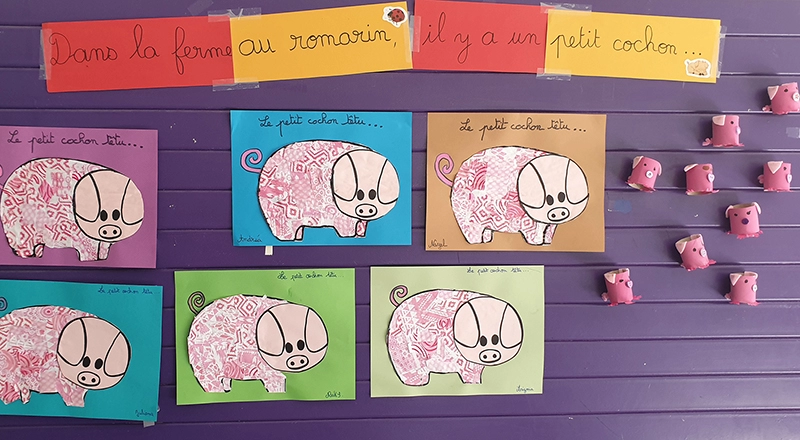 Dans la ferme au romarin, il y a un petit cochon...
Le petit cochon têtu...
Le petit cochon têtu...
Andréa
Le petit cochon têtu...
Nayel
Le petit cochon têtu
Juliana
Le petit cochon têtu
Le petit cochon têtu